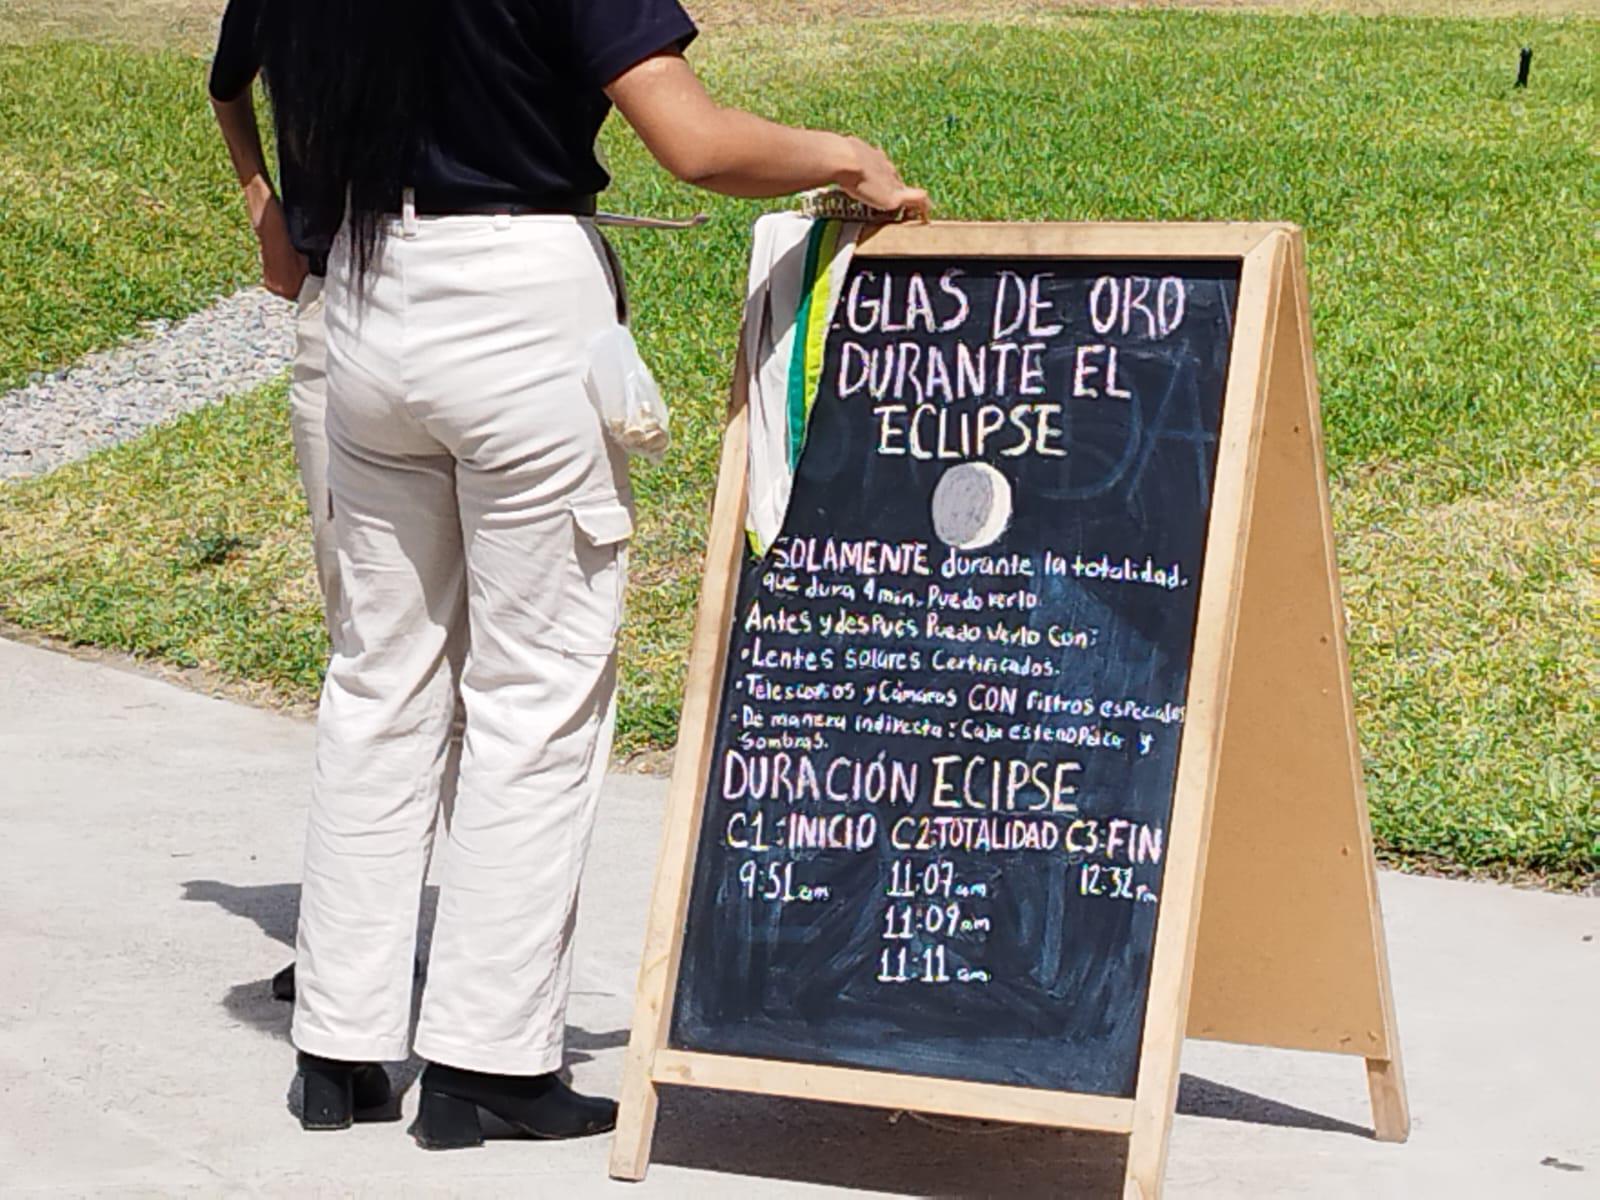 EGLAS DE ORO
DURANTE EL
ECLIPSE
SOLAMENTE durante la totalidad.
que dura 4 min. Puedo verlo.
Antes y despues Puedo verlo Con:
•Lentes solares Certificados.
•Telescopios y Cámaras CON Filtros especiales
•De manera indirecta: Caja estenopeica y
Sombras.
DURACIÓN ECIPSE
C1:INICIO C2:TOTALIDAD C3:FIN
9:51am 11:07am 12:32pm
11:09am
11:11am